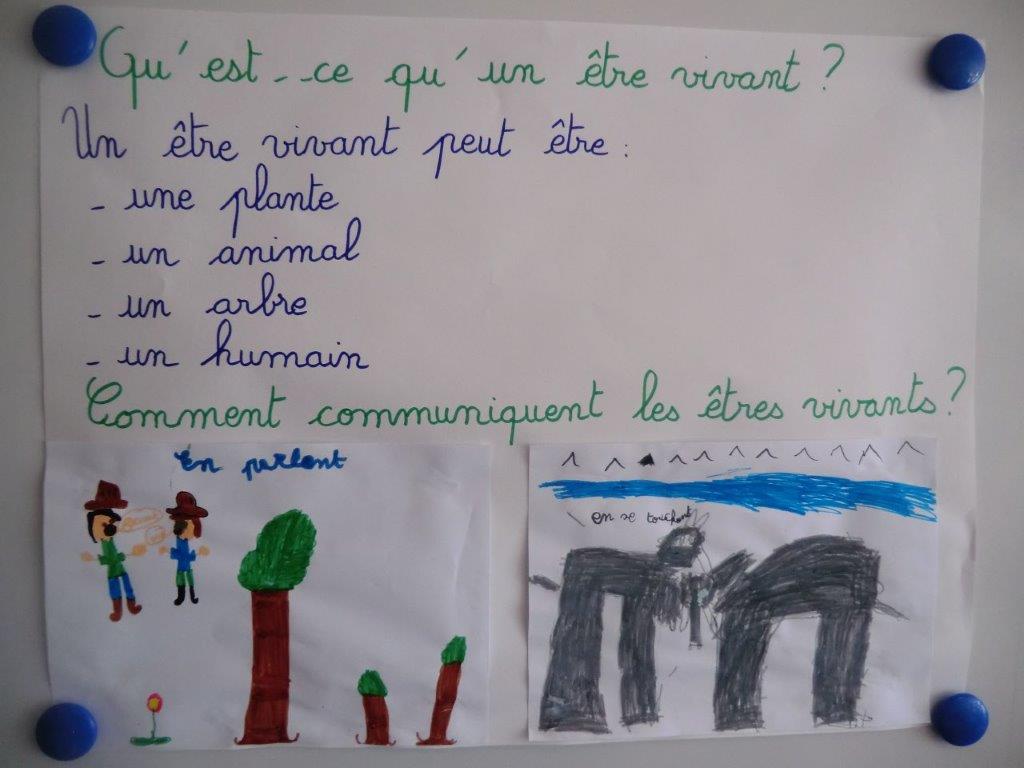 Qu'est-ce qu'un être vivant ?
Un être vivant peut être :
- une plante
- un animal
- un arbre
- un humain
Comment communiquent les êtres vivants ?
En parlant
en se touchant